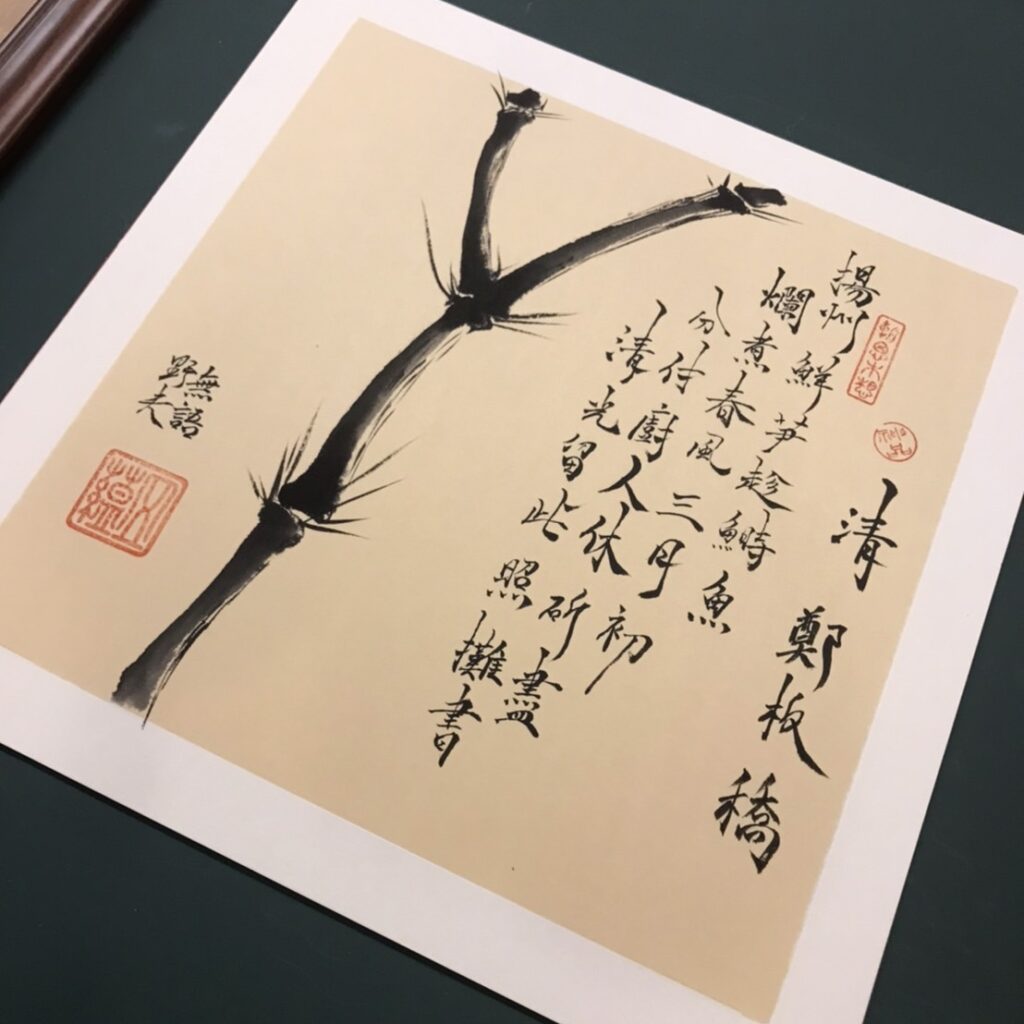 清 鄭板橋
揚州鮮笋趁鰣魚
爛煮春風三月初
分付廚人休斫盡
清光留此照攤書
無語
野夫